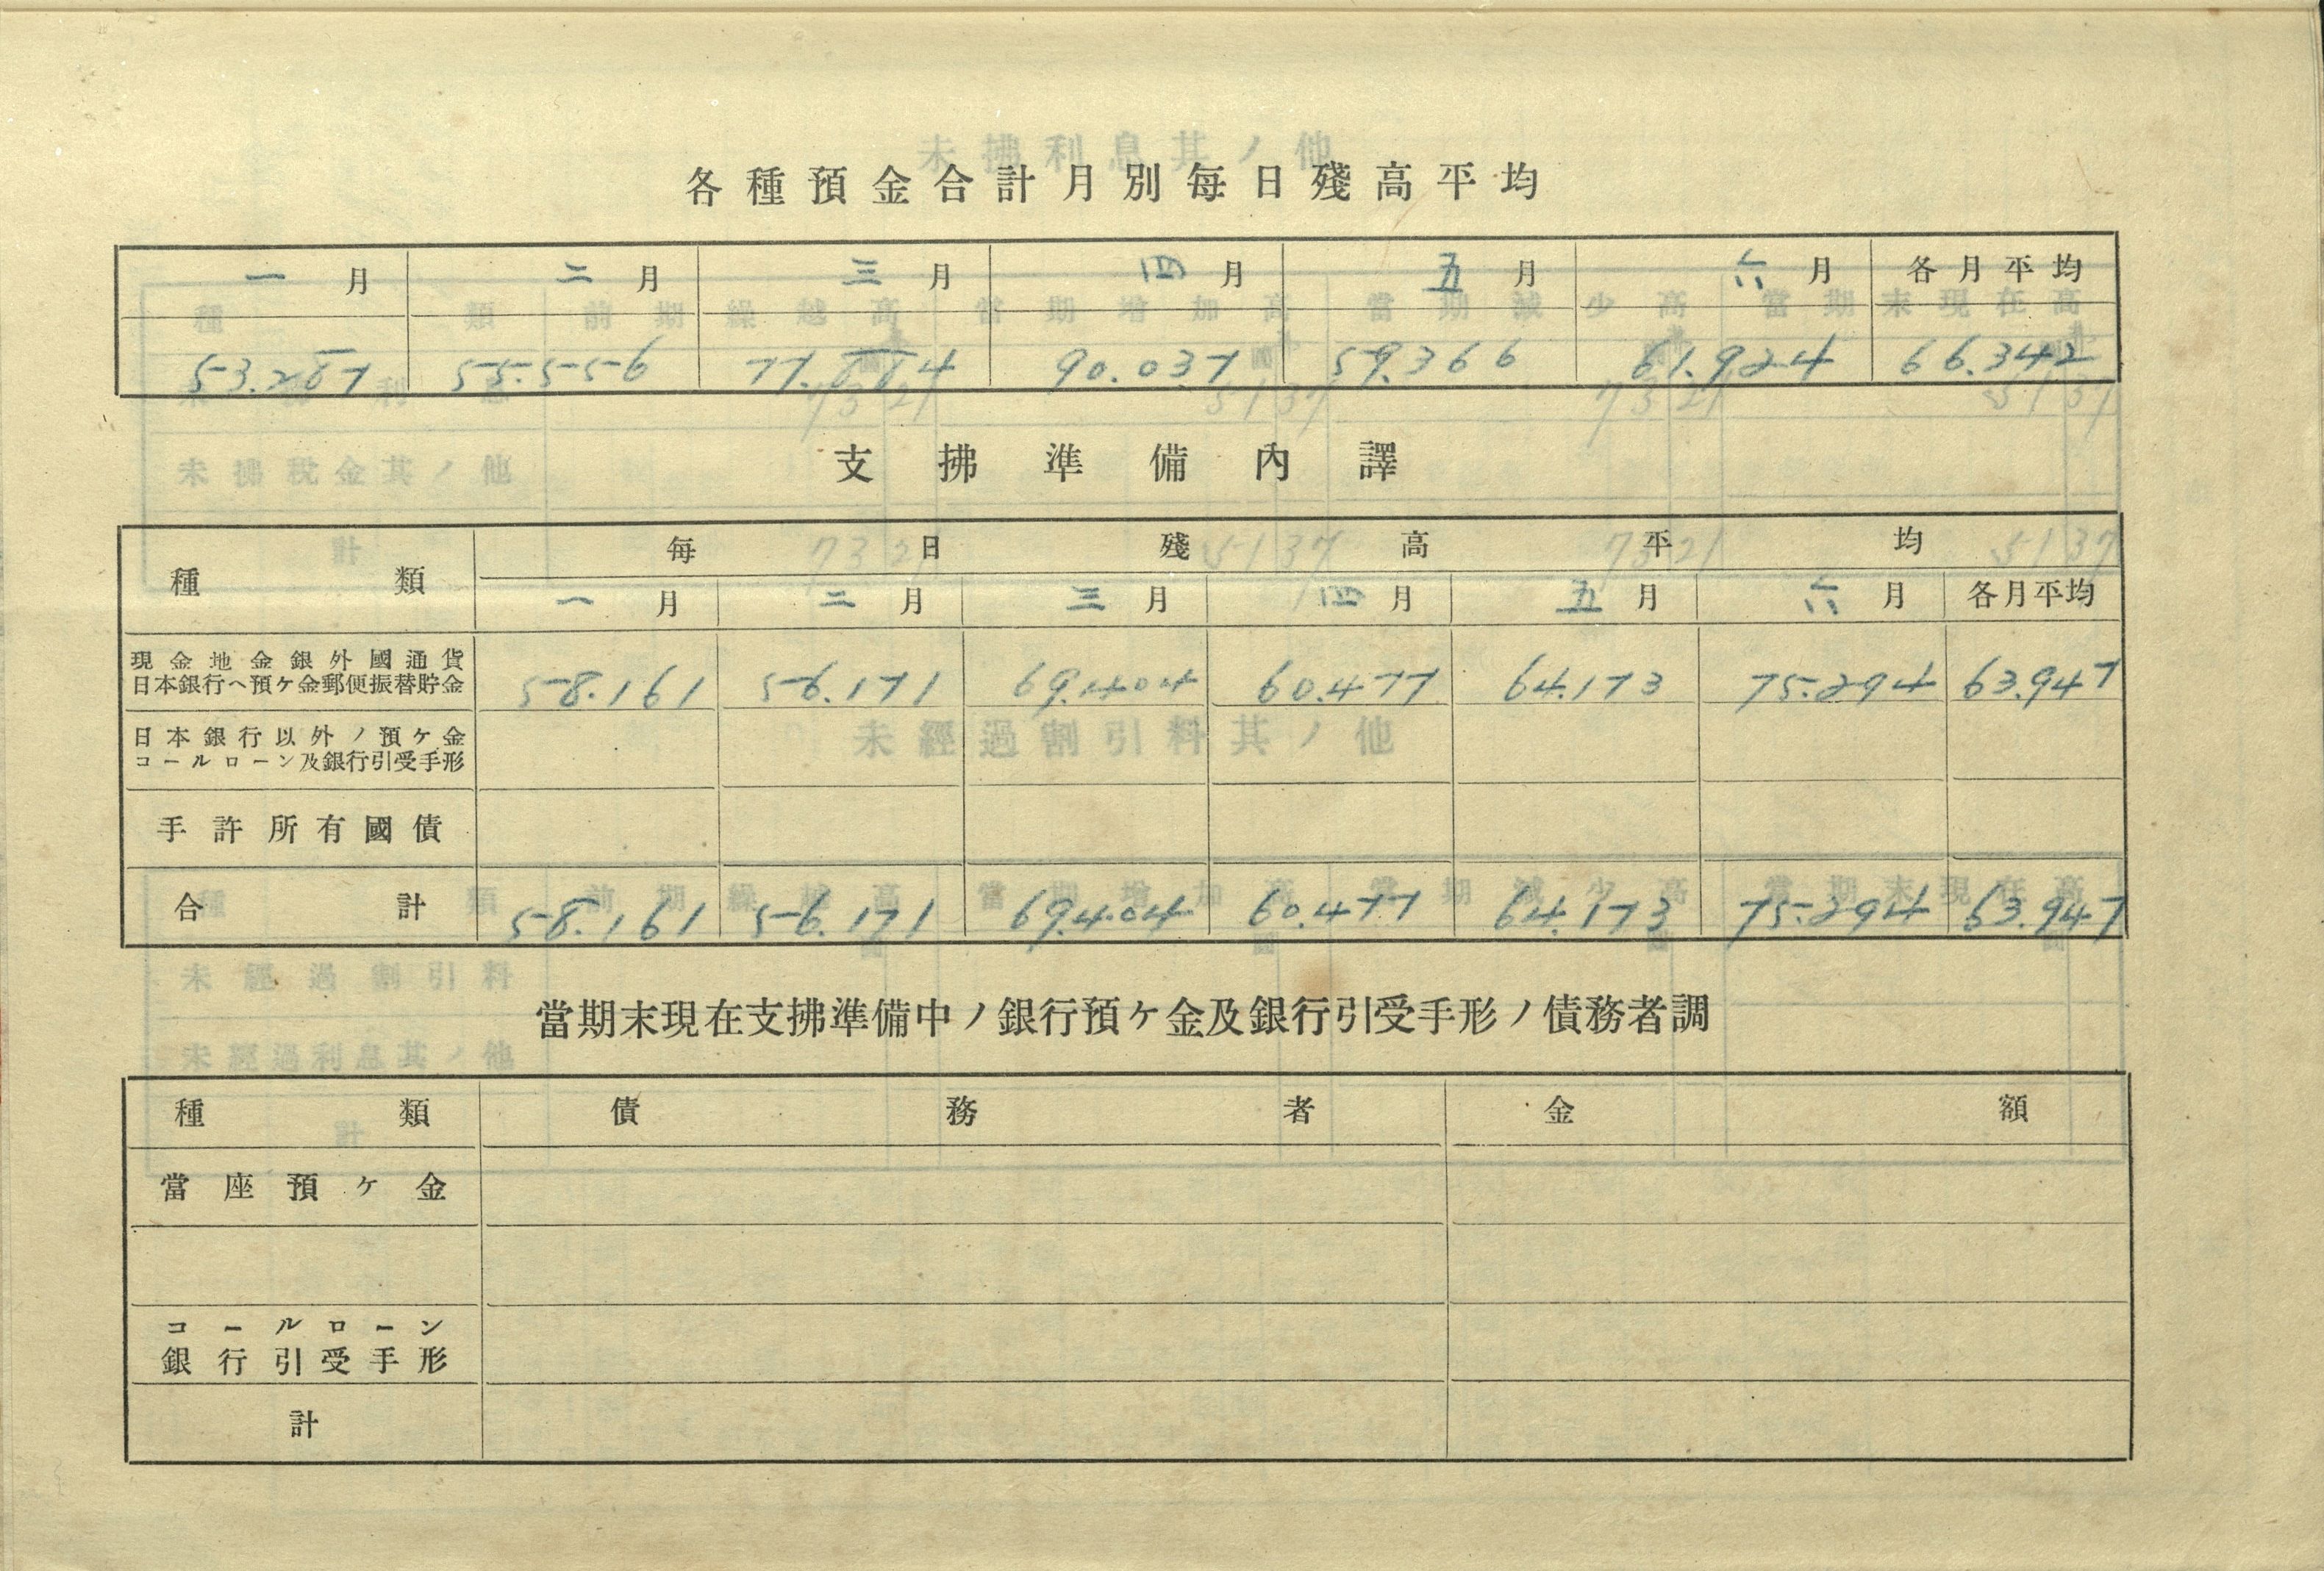 各種預金合計月別每日殘高平均
一月 二月 三月 四月 五月 六月 各月平均
53.287 55.556 77.884 90.037 59.366 61.924 66.342
支拂準備內譯
種類 每日殘高平均
一月 二月 三月 四月 五月 六月 各月平均
現金地金銀外國通貨
日本銀行ヘ預ケ金郵便振替貯金 58.161 56.171 69.404 60.477 64.173 75.294 63.947
日本銀行以外ノ預ケ金
コールローン及銀行引受手形
手許所有國債
合計 58.161 56.171 69.404 60.477 64.173 75.294 63.947
當期末現在支拂準備中ノ銀行預ケ金及銀行引受手形ノ債務者調
種類 債務者 金額
當座預ケ金
コールローン
銀行引受手形
計